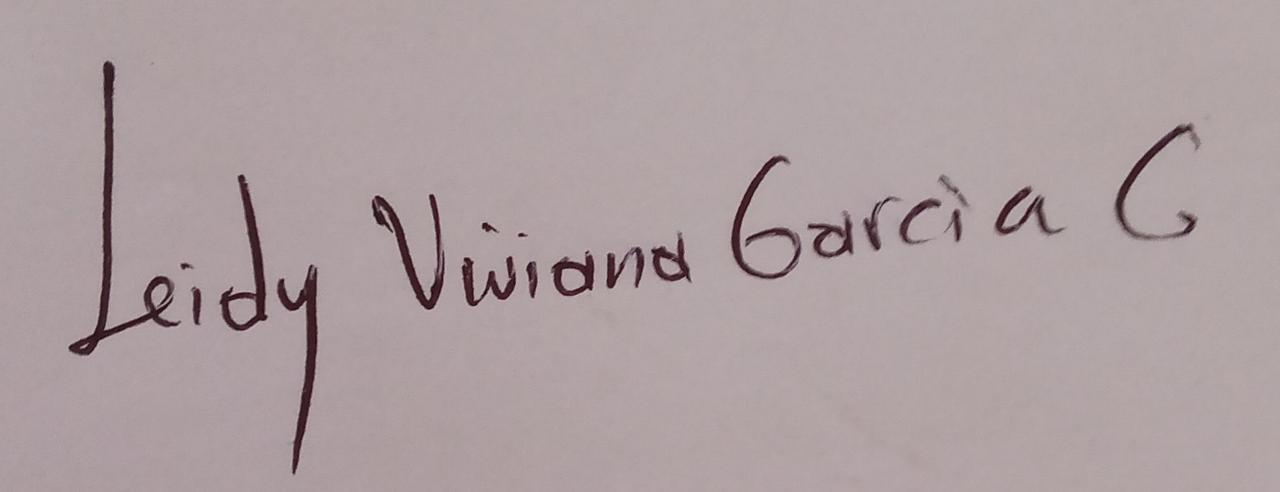 Leidy Viviana Garcia C